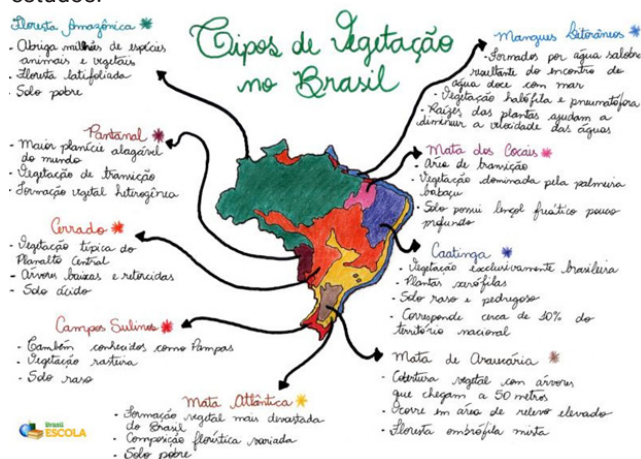 estudos.
Tipos de Vegetação
no Brasil
Floresta Amazônica *
- Abriga milhares de espécies
animais e vegetais
- Floresta latifoliada
- Solo pobre
Pantanal *
- Maior planície alagável
do mundo
- Vegetação de transição
- Formação vegetal heterogênea
Cerrado *
- Vegetação típica do
Planalto Central
- Árvores baixas e retorcidas
- Solo ácido
Campos Sulinos *
- Também conhecidos como Pampas
- Vegetação rasteira
- Solo raso
Mata Atlântica *
- Formação vegetal mais devastada
do Brasil
- Composição florística variada
- Solo pobre
Mangues Litorâneos *
- Formados por água salobra
resultante do encontro de
água doce com mar
- Vegetação halófila e pneumatófora
- Raízes das plantas ajudam a
diminuir a velocidade das águas
Mata dos Cocais *
- Área de transição
- Vegetação dominada pela palmeira
babaçu
- Solo possui lençol freático pouco
profundo
Caatinga *
- Vegetação exclusivamente brasileira
- Plantas xerófilas
- Solo raso e pedregoso
- Corresponde cerca de 10% do
território nacional
Mata de Araucária *
- Cobertura vegetal com árvores
que chegam a 50 metros
- Ocorre em área de relevo elevado
- Floresta ombrófila mista
Brasil
ESCOLA